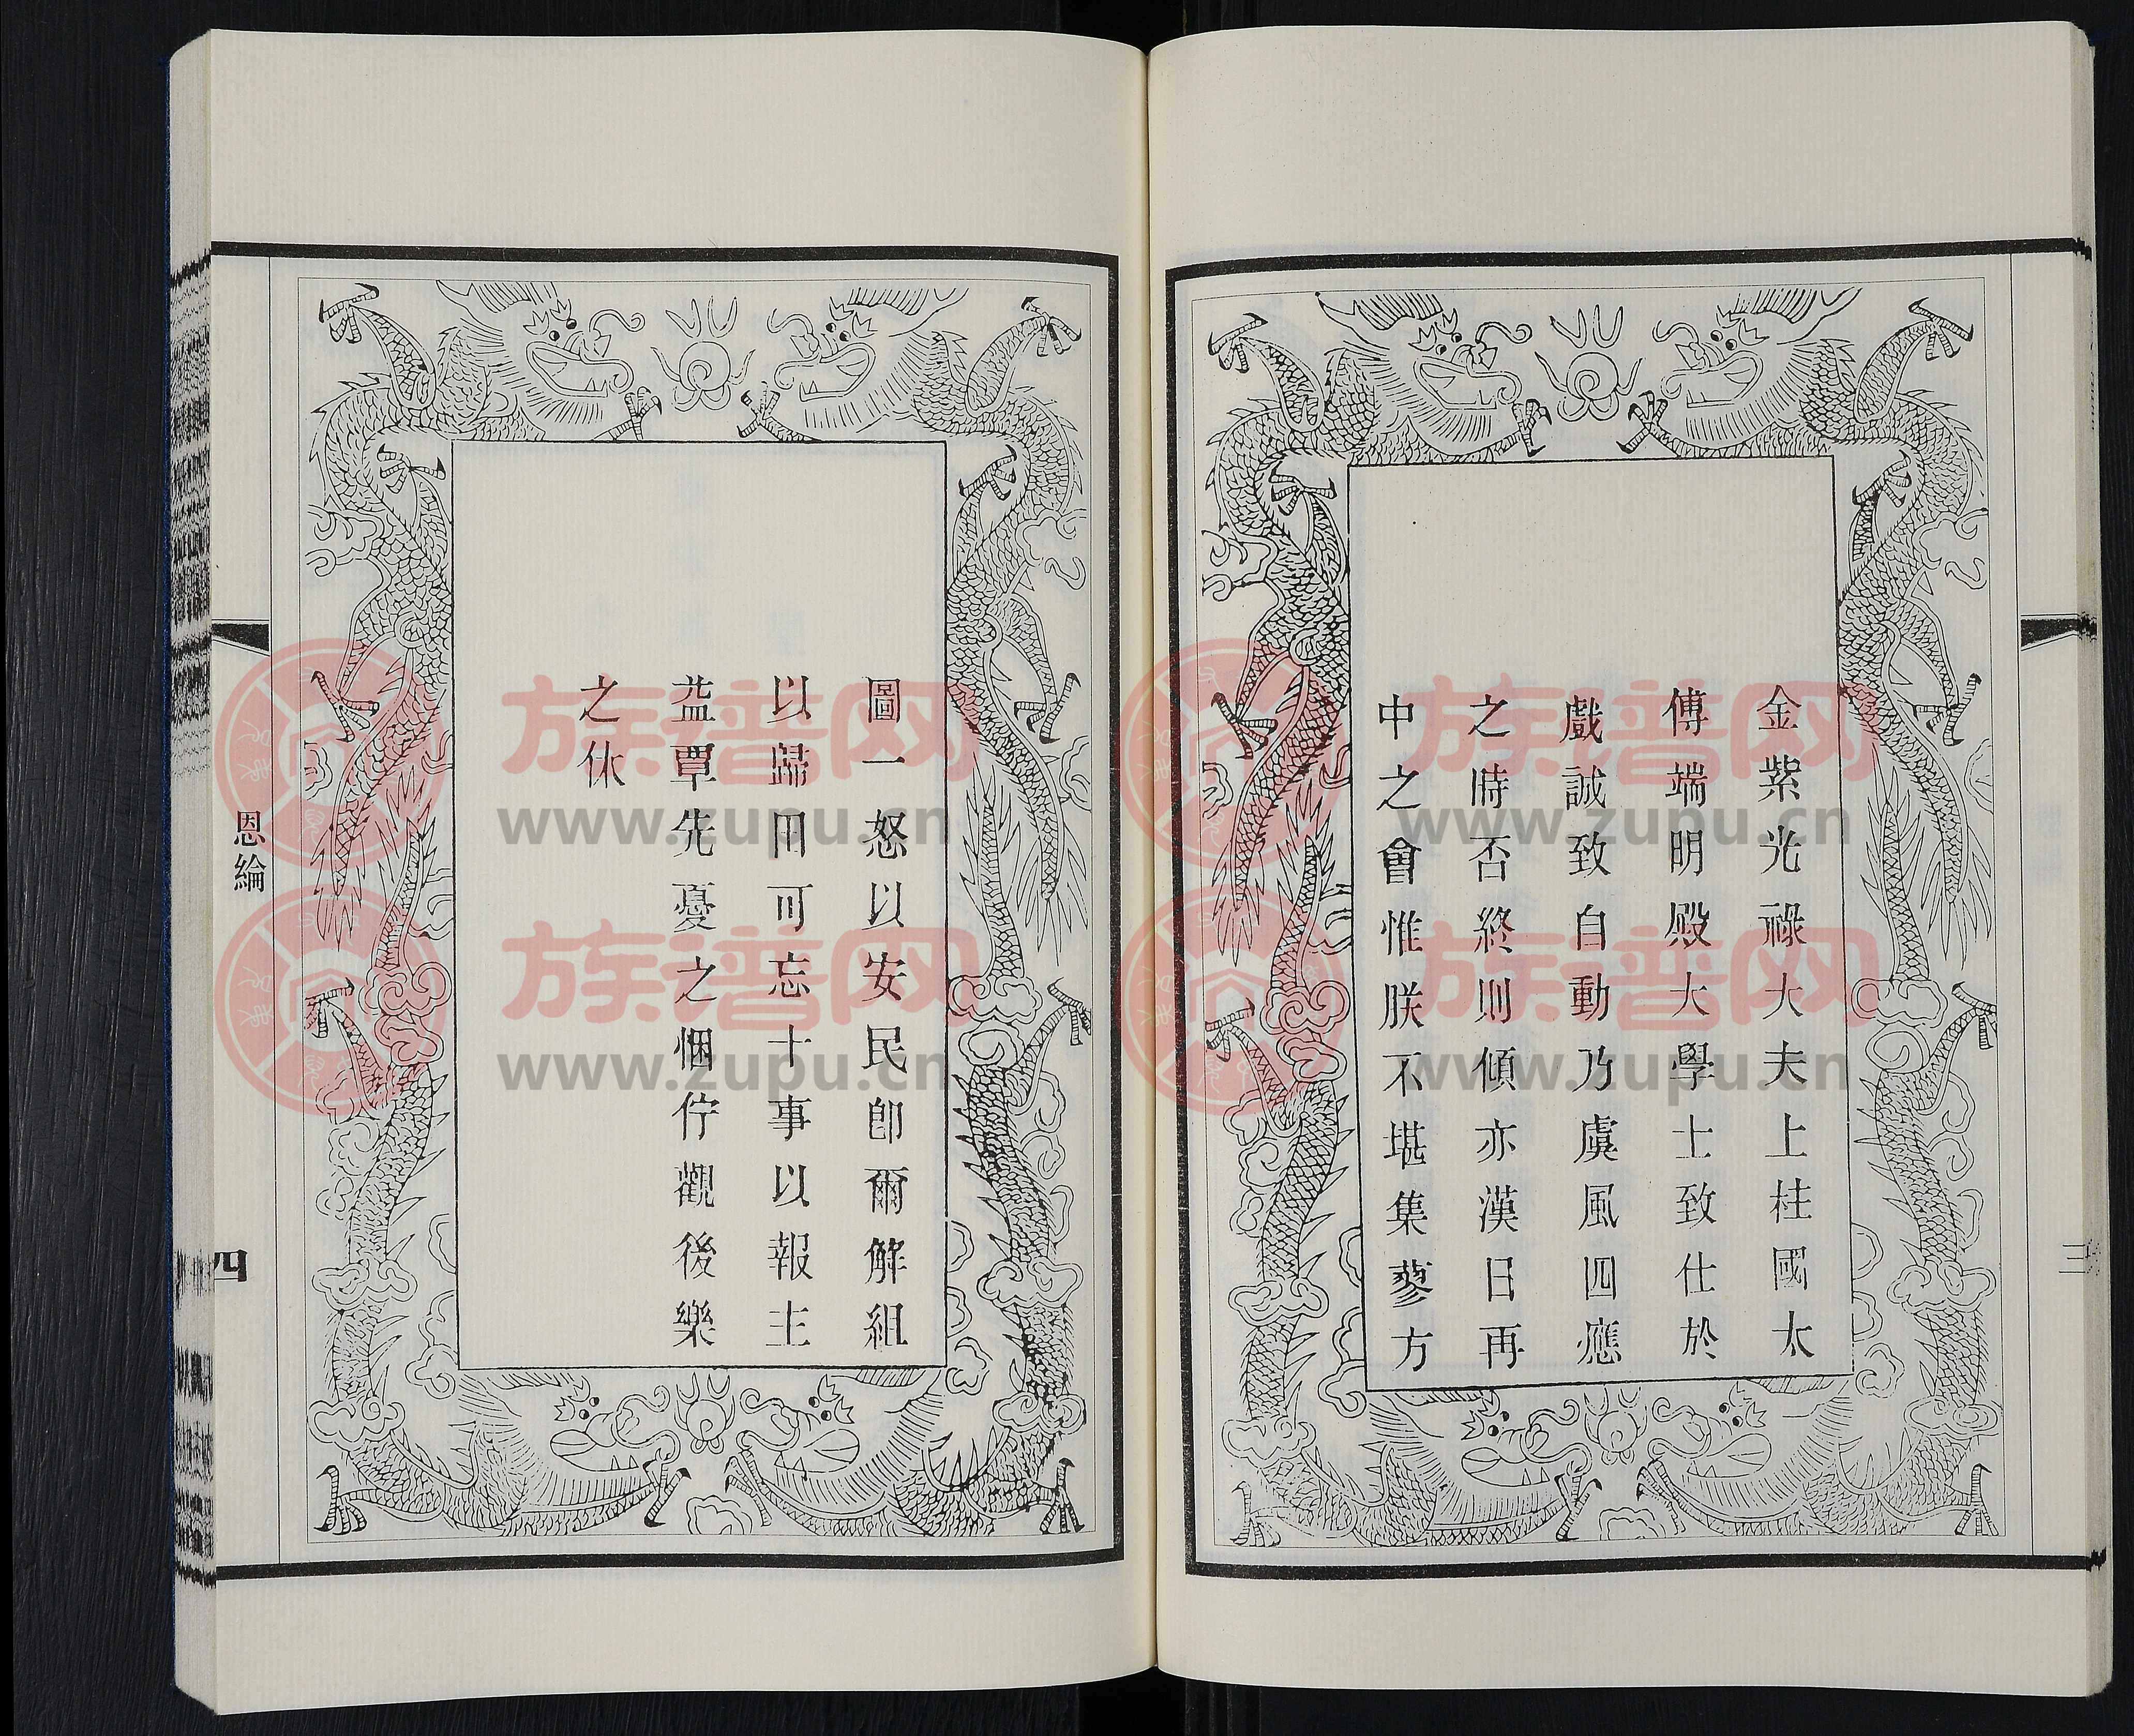 金紫光祿大夫上柱國太
傅端明殿大學士致仕於
戲誠致自動乃虞風四應
之時否終則傾亦漢日再
中之會惟朕不堪集蓼方
圖一怒以安民卽爾解組
以歸田可忘十事以報主
葢覃先憂之悃佇觀後樂
之休
恩綸
四
三
族谱网
www.zupu.cn
族谱网
www.zupu.cn
族谱网
www.zupu.cn
族谱网
www.zupu.cn